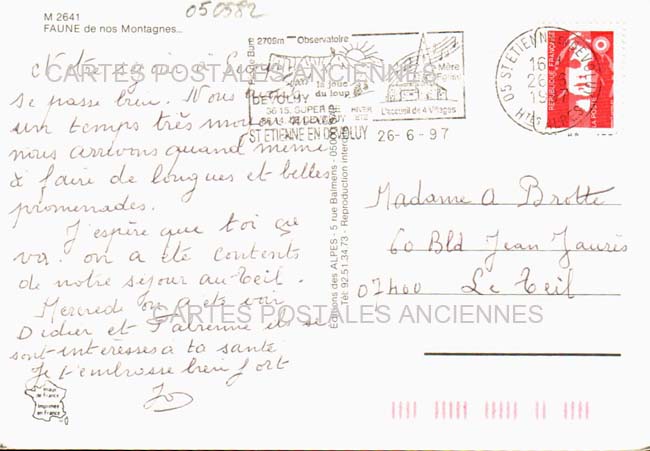 M 2641
FAUNE de nos Montagnes...
050582
Notre séjour à
se passe bien. Nous
un temps très
nous arrivons quand même
à faire de longues et belles
promenades.
J'espère que toi ça
va. on a été contents
de notre séjour au Teil.
Mercredi on a été voir
Didier et Fabienne ils se
sont intéressés à ta santé
Je t'embrasse bien fort
Jo
2709m Observatoire
la joue
du loup
DEVOLUY
3615. SUPER DE
HIVER
ETE
L'accueil de 4 Villages
ST ETIENNE EN DEVOLUY
26-6-97
05 ST ETIENNE EN
16
26
19
Htes ALPES
REPUBLIQUE FRANÇAISE
LA POSTE
Editions des ALPES - 5 rue Balmens - 05000
Tél: 92.51.34.73 - Reproduction interdite
Madame A Brotte
60 Bld Jean Jaurès
07400 Le Teil
Imprimée
en France
CARTES POSTALES ANCIENNES
CARTES POSTALES ANCIENNES